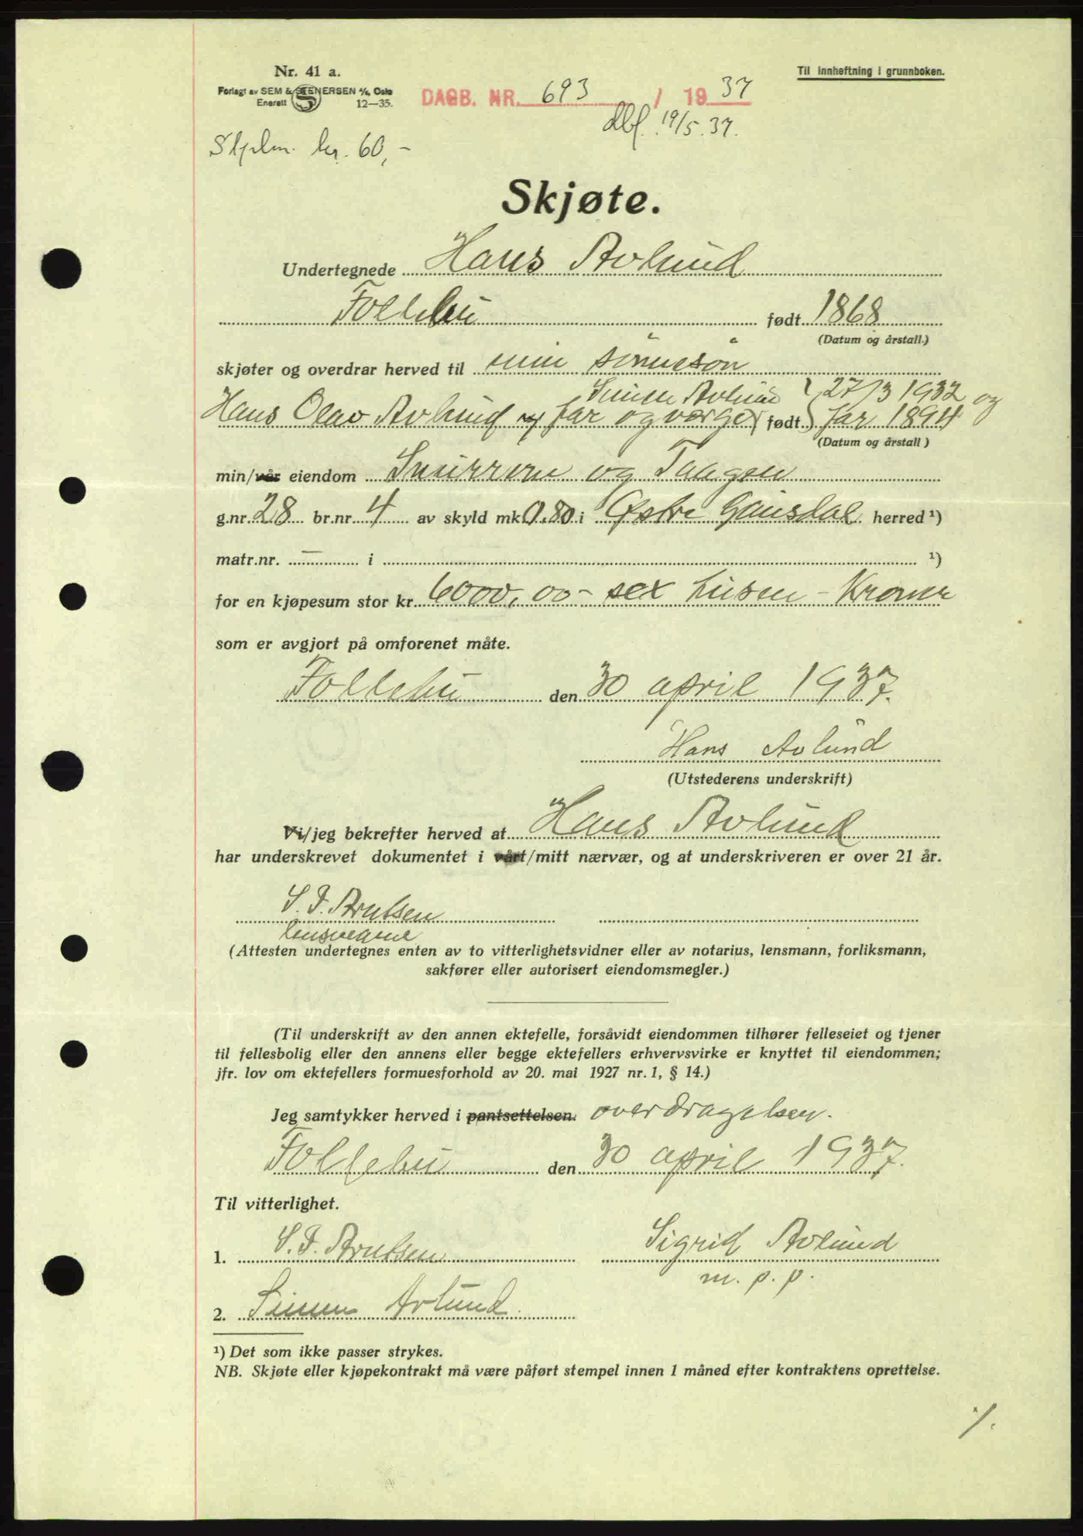 Nr. 41 a.
Til innheftning i grunnboken.
Forlagt av SEM & STENERSEN A/S, Oslo
Enerett 12—35.
DAGB. NR. 693 / 19 37
dbf. 19/5.37.
Stplm. kr. 60,-
Skjøte.
Undertegnede Hans Avlund
Follebu født 1868
(Datum og årstall.)
skjøter og overdrar herved til min sønnesøn
Simen Avlund 27/3 1932 og
Hans Olav Avlund v/ far og verge født far 1894
(Datum og årstall)
min/vår eiendom og
g.nr. 28 br.nr. 4 av skyld mk. 0.80 i Østre Gausdal herred ¹)
matr.nr. — i ¹)
for en kjøpesum stor kr. 6000,00 - sex tusen - Kroner
som er avgjort på omforenet måte.
Follebu den 30 april 1937.
Hans Avlund
(Utstederens underskrift)
Vi/jeg bekrefter herved at Hans Avlund
har underskrevet dokumentet i vårt/mitt nærvær, og at underskriveren er over 21 år.
(Attesten undertegnes enten av to vitterlighetsvidner eller av notarius, lensmann, forliksmann,
sakfører eller autorisert eiendomsmegler.)
(Til underskrift av den annen ektefelle, forsåvidt eiendommen tilhører felleseiet og tjener
til fellesbolig eller den annens eller begge ektefellers erhvervsvirke er knyttet til eiendommen;
jfr. lov om ektefellers formuesforhold av 20. mai 1927 nr. 1, § 14.)
Jeg samtykker herved i pantsettelsen. overdragelsen.
Follebu den 30 april 1937.
Til vitterlighet.
1. Sigrid Avlund
m. p. p.
2. Simen Avlund.
¹) Det som ikke passer strykes.
NB. Skjøte eller kjøpekontrakt må være påført stempel innen 1 måned efter kontraktens oprettelse.